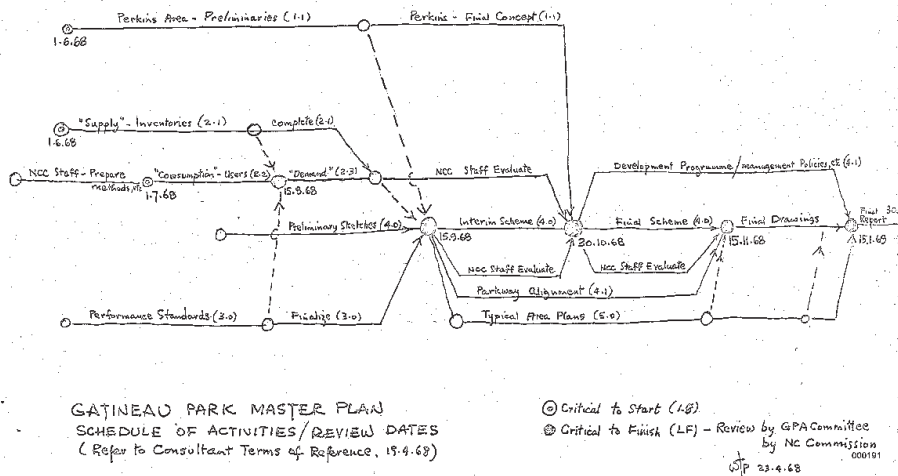 Perkins Area - Preliminaries (1.1)
Perkins - Final Concept (1.1)
1.6.68
"Supply" - Inventories (2.1)
Complete (2.1)
1.6.68
NCC Staff - Prepare
methods, etc
"Consumption" - Users (2.2)
"Demand" (2.3)
NCC Staff Evaluate
Development Programme/management Policies, etc (4.1)
1.7.68
15.8.68
Preliminary Sketches (4.0)
Interim Scheme (4.0)
Final Scheme (4.0)
Final Drawings
Final 30.
Report
15.9.68
20.10.68
15.11.68
15.1.69
NCC Staff Evaluate
NCC Staff Evaluate
Parkway Alignment (4.1)
Performance Standards (3.0)
Finalize (3.0)
Typical Area Plans (5.0)
GATINEAU PARK MASTER PLAN
SCHEDULE OF ACTIVITIES/REVIEW DATES
(Refer to Consultant Terms of Reference, 19.4.68)
Critical to Start
Critical to Finish (LF) - Review by GPA Committee
by NC Commission
000191
23.4.68